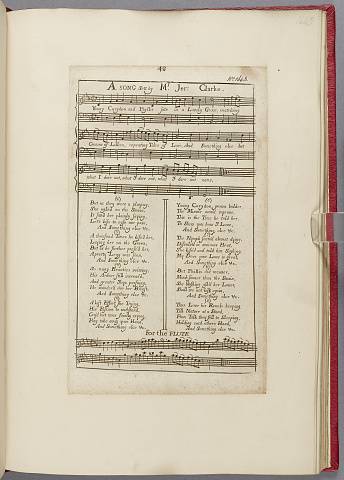 48
A SONG Set by Mr. Jer: Clarke.
Young Corydon and Phyllis sate in a Lovely Grove, contriving
Crowns of Lillies, repeating Tales of Love, And Something else but
what I dare not, what I dare not, what I dare not name,
But as they were a playing,
She ogled so the Swain,
It sav'd her plainly saying,
Let's kiss to ease our pain,
And Something else &c.
A thousand Times he kiss'd her,
Laying her on the Green,
But as he further press'd her,
A pretty Leg was seen,
And Something else &c.
So many Beauties viewing,
His Ardour still increas'd,
And greater Joys pursuing,
He wander'd o'er her Breast,
And Something else &c.
A last Effort she Trying,
His Passion to withstand,
Cry'd but twas faintly crying,
Pray take away your Hand,
And Something else &c.
Young Corydon grown bolder,
The Minute would improve,
This is the Time he told her,
To Shew you how I Love,
And Something else &c.
The Nymph seem'd almost dying,
Dissolv'd in amorous Heat,
She kiss'd and told him Sighing,
My Dear your Love is great,
And Something else &c.
But Phillis did recover,
Much sooner than the Swain,
She Blushing ask'd her Lover,
Shall we not kiss again,
And Something else &c.
Thus Love his Revels keeping,
Till Nature at a Stand,
From Talk they fell to Sleeping,
Holding each others Hand,
And Something else &c.
for the FLUTE